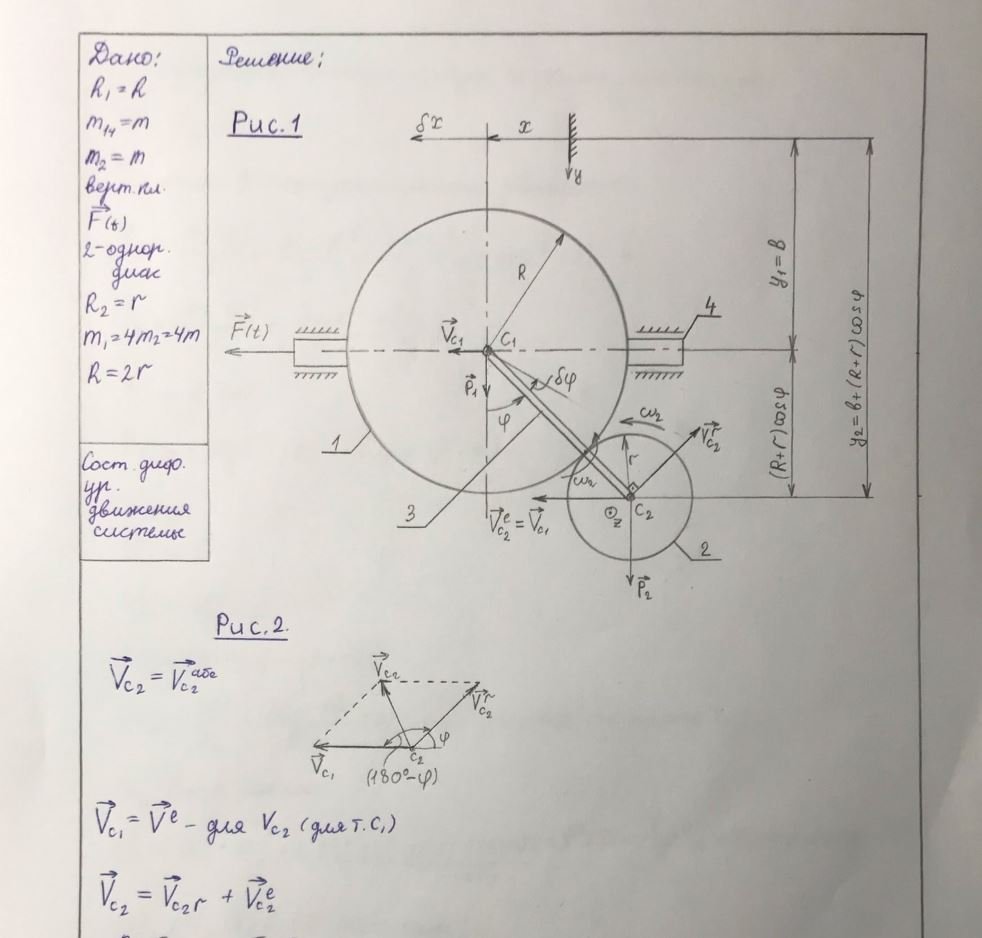 Дано:
R₁ = R
m₁₄ = m
m₂ = m
верт. пл.
F⃗(t)
2-однор.
диск
R₂ = r
m₁ = 4m₂ = 4m
R = 2r
Сост. диф.
ур.
движения
системы
Решение;
Рис. 1
δx
x
y
R
F⃗(t)
V⃗c₁
C₁
4
P⃗₁
δφ
φ
1
ω₂
V⃗ʳc₂
r
ω₂
3
V⃗ᵉc₂ = V⃗c₁
⊙z
C₂
2
P⃗₂
y₁ = в
(R+r)cosφ
y₂ = в+(R+r)cosφ
Рис. 2.
V⃗c₂ = V⃗c₂ᵃᵇᶜ
V⃗c₂
V⃗ʳc₂
φ
V⃗c₁
c₂
(180°-φ)
V⃗c₁ = V⃗ᵉ - для Vc₂ (для т. C₁)
V⃗c₂ = V⃗c₂r + V⃗ᵉc₂